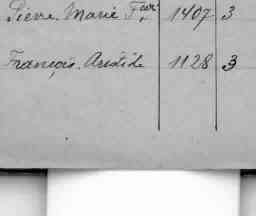 Pierre Marie Fçois 1407 3
François Aristide 1128 3